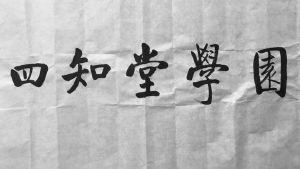 四知堂學園